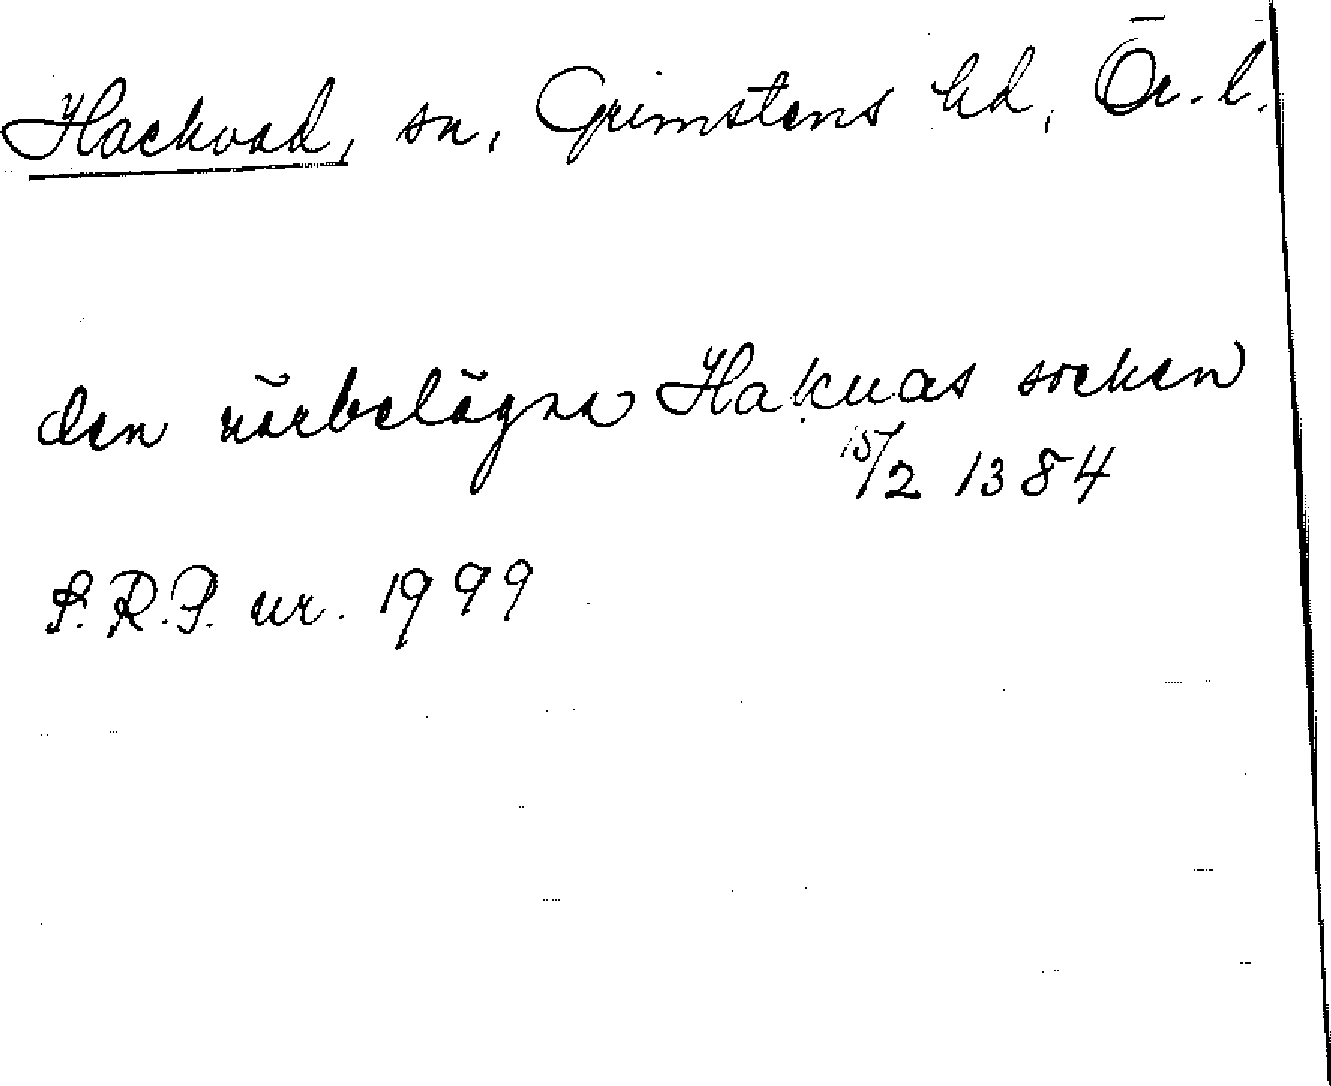 Hackvad, sn, Grimstens hd, Ör. l.
den närbelägna Hakuas socken
15/2 1384
S.R.P. nr. 1999